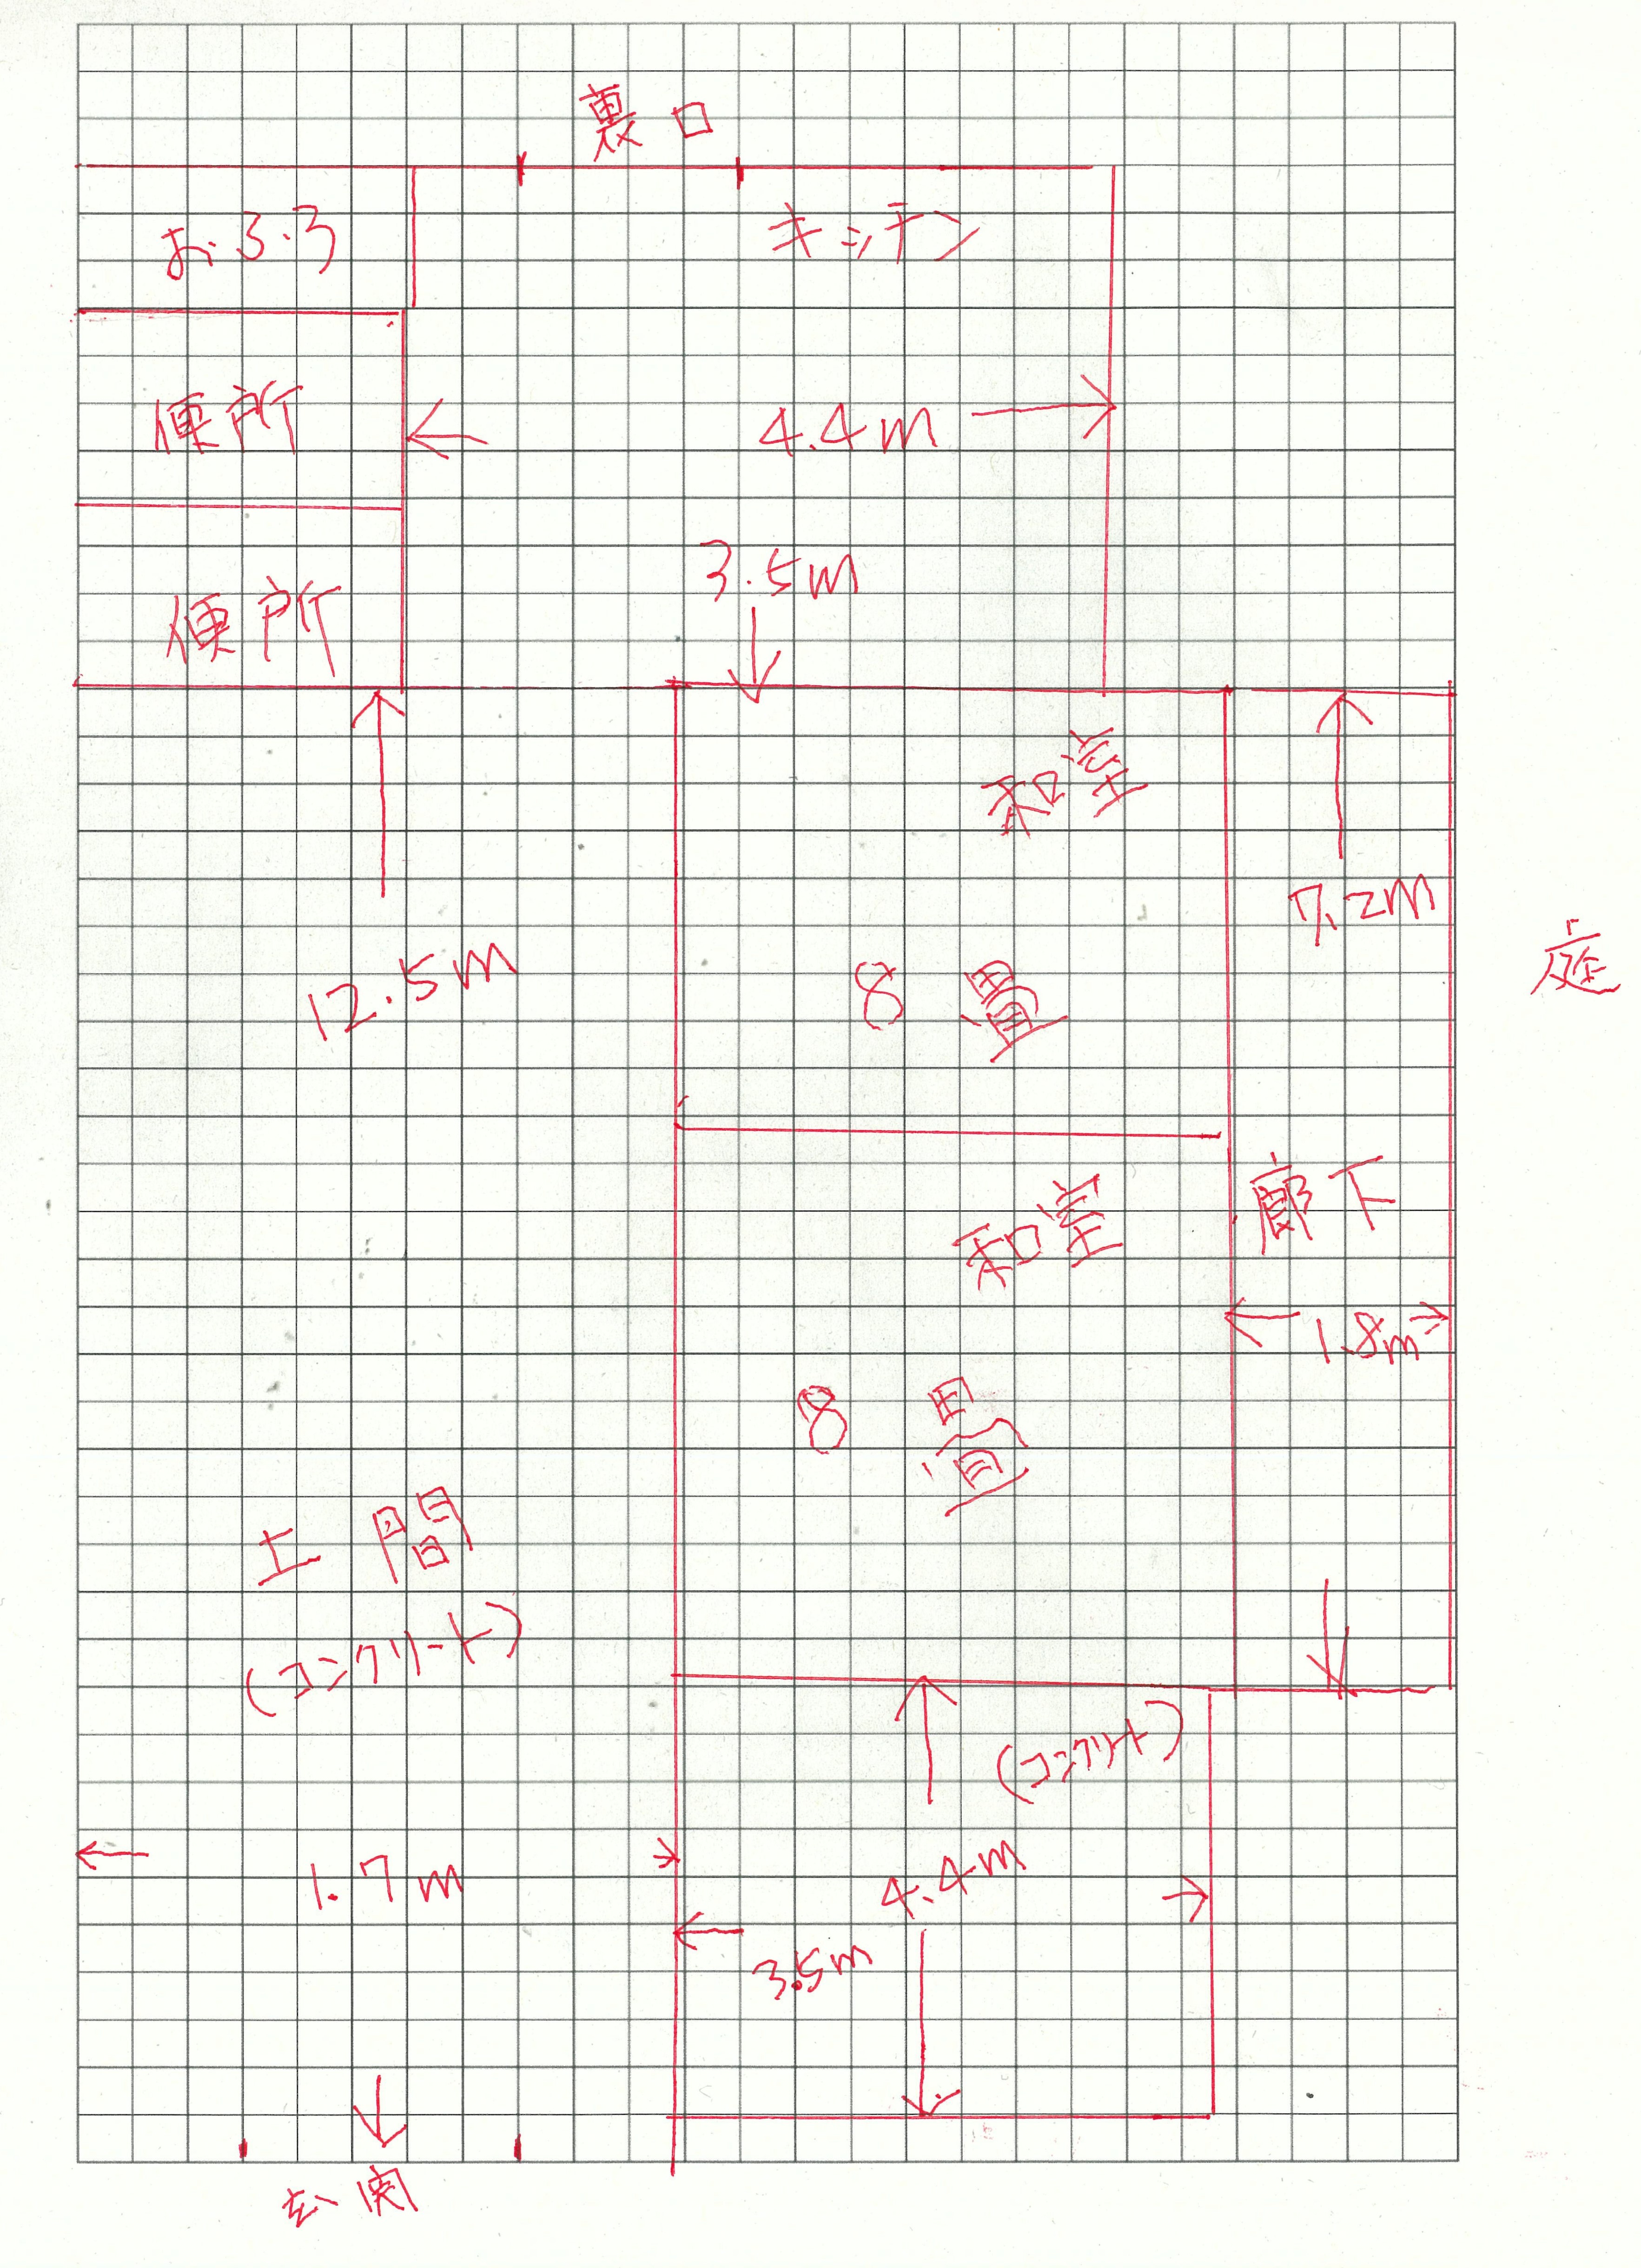 裏口
おふろ
キッチン
便所
4.4m
3.5m
便所
和室
7.2m
庭
12.5m
8 畳
廊下
和室
1.8m
8 畳
土間
(コンクリート)
(コンクリート)
1.7m
4.4m
3.5m
玄関